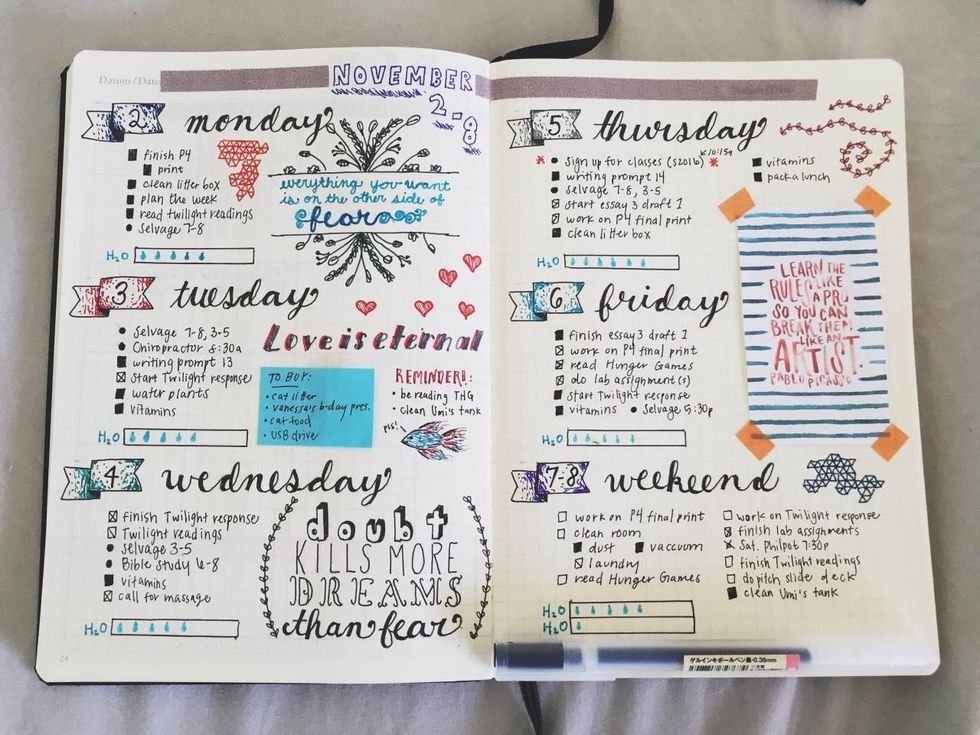 Datum / Date
NOVEMBER
2-8
2 monday
finish P4
print
clean litter box
plan the week
read twilight readings
Selvage 7-8
H2O
everything you want
is on the other side of
fear
3 tuesday
Selvage 7-8, 3-5
Chiropractor 8:30a
writing prompt 13
start Twilight response
water plants
vitamins
H2O
Love is eternal
TO BUY:
cat litter
vanessa's b-day pres.
cat food
USB drive
REMINDER!!:
be reading THG
clean Umi's tank
pls!
4 wednesday
finish Twilight response
Twilight readings
Selvage 3-5
Bible Study 6-8
vitamins
call for massage
H2O
doubt
KILLS MORE
DREAMS
than fear
24
5 thursday
10:15a
* Sign up for classes (S2016) *
writing prompt 14
Selvage 7-8, 3-5
start essay 3 draft 1
work on P4 final print
clean litter box
vitamins
pack a lunch
H2O
6 friday
finish essay 3 draft 1
work on P4 final print
read Hunger Games
do lab assignment(s)
start Twilight response
vitamins • Selvage 5:30p
H2O
LEARN THE
RULES LIKE
A PRO
SO YOU CAN
BREAK THEM
LIKE AN
ARTIST.
PABLO PICASSO
7-8 weekend
work on P4 final print
clean room
dust vaccuum
laundry
read Hunger Games
work on Twilight response
finish lab assignments
Sat. Philpot 7:30p
finish Twilight readings
do pitch slide deck
clean Umi's tank
H2O
H2O
ゲルインキボールペン黒・0.38mm